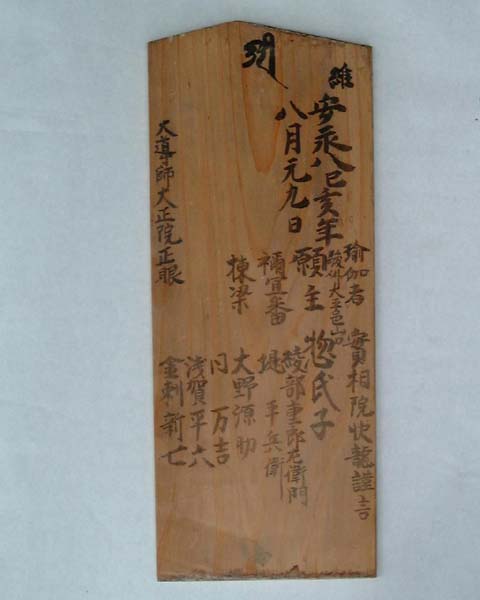 維
安永八己亥年
八月元九日
瑜伽者 實相院快龍謹言
願主 惣氏子
禰宜番 綾部重郎左衛門
堤 平兵衛
棟梁 大野源助
同 万吉
浅賀平六
金刺新七
大導師大正院正眼